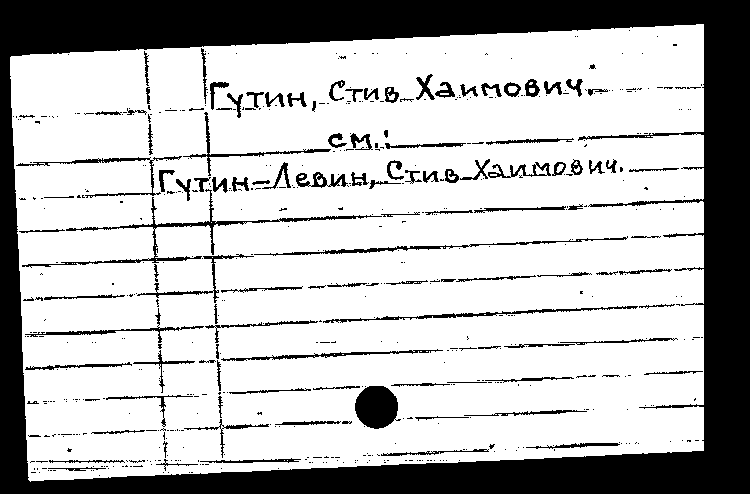 Гутин, Стив Хаимович.
см.:
Гутин-Левин, Стив Хаимович.